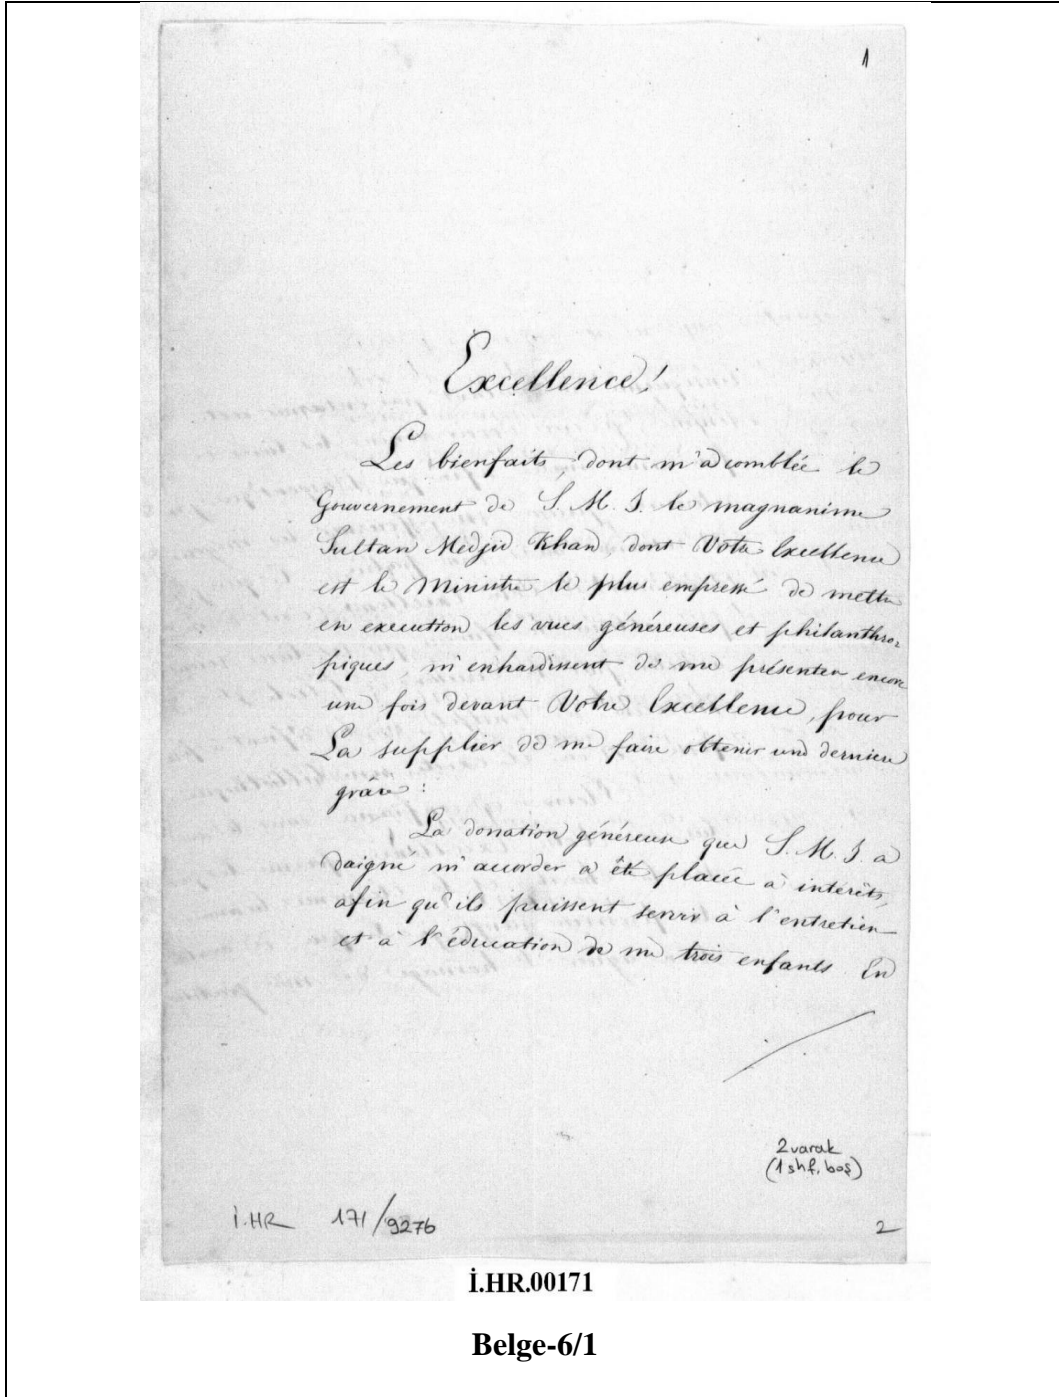 1
Excellence!
Les bienfaits, dont m'a comblée le
Gouvernement de S. M. I. le magnanime
Sultan Medjid Khan, dont Votre Excellence
est le Ministre le plus empressé de mettre
en execution les vues généreuses et philanthro-
piques, m'enhardissent de me présenter encore
une fois devant Votre Excellence, pour
La supplier de me faire obtenir une derniere
grâce:
La donation généreuse que S. M. I. a
daigné m'accorder a été placée à intérêts,
afin qu'ils puissent servir à l'entretien
et à l'éducation de mes trois enfants. En
2 varak
(1 shf. boş)
İ.HR 171/9276
2
İ.HR.00171
Belge-6/1